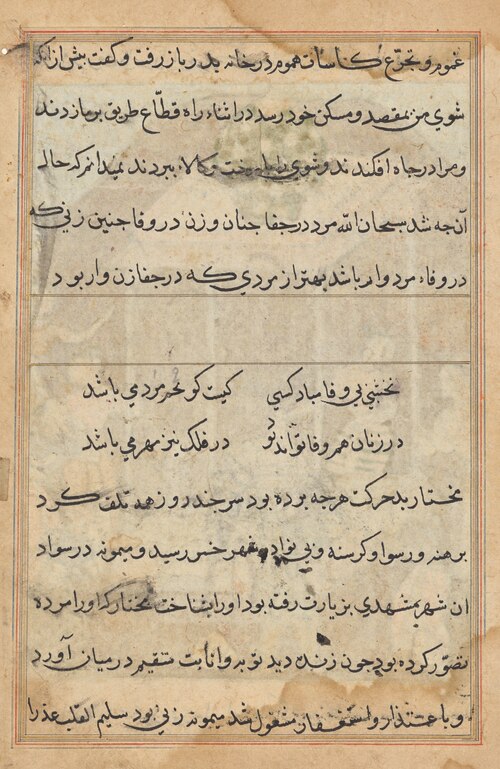 غموم و تجرّع کأسات هموم در خانه پدر باز رفت و کفت پیش از انکه
شوی من بمقصد و مسکن خود رسد در اثناء راه قطّاع طریق بر ما زدند
و مرا در چاه افکندند و شوی را و کالا ببردند نمیدانم که حال
آن چه شد سبحان اللّه مرد در جفا چنان و زن در وفا چنین زنی که
در وفاء مردوار باشد بهتر از مردی که در جفا زن وار بود
نخشبی بی وفا مباد کسی کیت کو نه مردمی باشد
در زنان هم وفا تواند بود در فلک نیز مهرمی باشد
مختار بدحرکت هرچه برده بود سر چند روز همه تلف کرد
برهنه و رسوا و کرسنه و بی نوا در شهر خسر رسید و میمونه در سواد
ان شهر بمشهدی بزیارت رفته بود اورا بشناخت مختار که اورا مرده
تصوّر کرده بود چون زنده دید توبه و انابت مستقیم در میان آورد
و باعتذار و استغفار مشغول شد میمونه زنی بود سلیم القلب عذر را